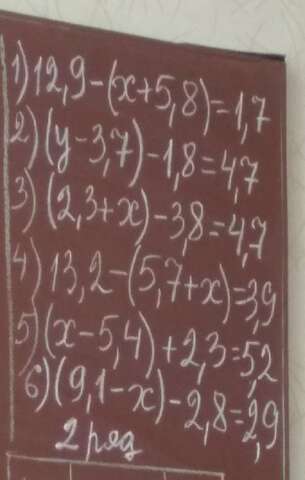 1) 12,9-(x+5,8)=1,7
2) (y-3,7)-1,8=4,7
3) (2,3+x)-3,8=4,7
4) 13,2-(5,7+x)=3,9
5) (x-5,4)+2,3=5,2
6) (9,1-x)-2,8=2,9
2 ряд